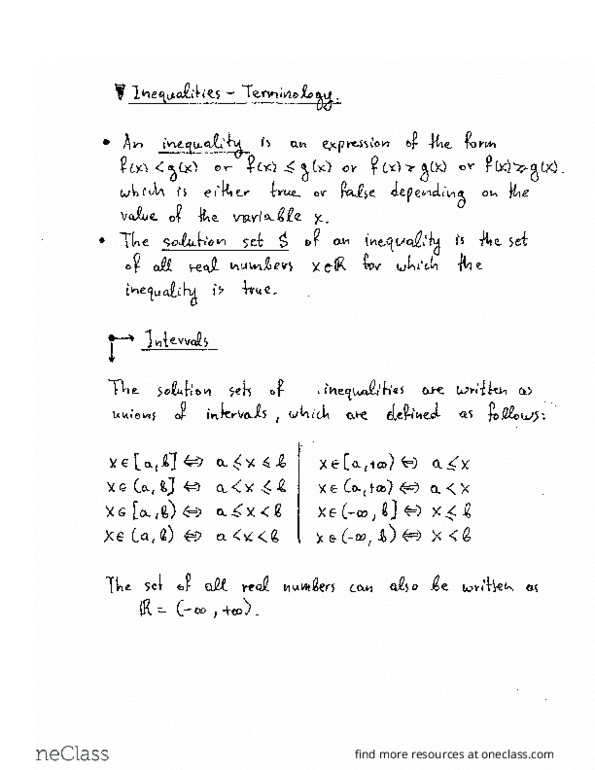 ▼ Inequalities – Terminology.
• An inequality is an expression of the form
f(x) < g(x) or f(x) ⩽ g(x) or f(x) > g(x) or f(x) ⩾ g(x).
which is either true or false depending on the
value of the variable x.
• The solution set S of an inequality is the set
of all real numbers x∈ℝ for which the
inequality is true.
Intervals
The solution sets of inequalities are written as
unions of intervals, which are defined as follows:
x∈[a,b] ⇔ a⩽x⩽b | x∈[a,+∞) ⇔ a⩽x
x∈(a,b] ⇔ a<x⩽b | x∈(a,+∞) ⇔ a<x
x∈[a,b) ⇔ a⩽x<b | x∈(-∞,b] ⇔ x⩽b
x∈(a,b) ⇔ a<x<b | x∈(-∞,b) ⇔ x<b
The set of all real numbers can also be written as
ℝ = (-∞,+∞).
neClass
find more resources at oneclass.com